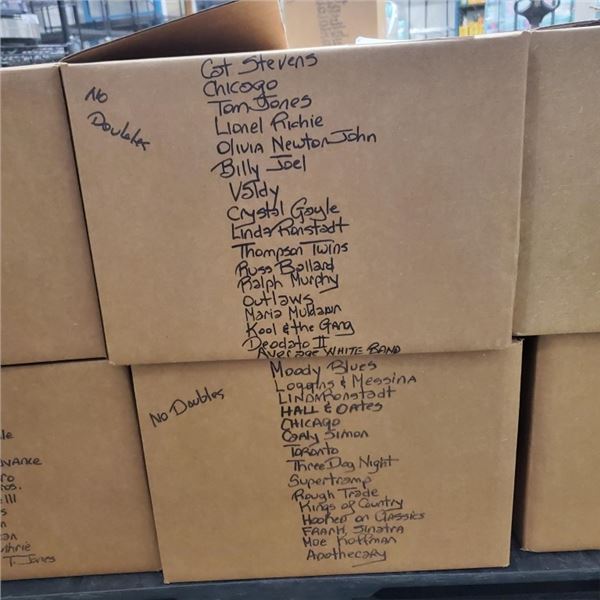 No
Doubles
Cat Stevens
Chicago
Tom Jones
Lionel Richie
Olivia Newton John
Billy Joel
Valdy
Crystal Gayle
Linda Ronstadt
Thompson Twins
Russ Ballard
Ralph Murphy
Outlaws
Maria Muldaur
Kool & the Gang
Deodato II
AVERAGE WHITE BAND
No Doubles
Moody Blues
Loggins & Messina
LINDA Ronstadt
HALL & OATES
CHICAGO
Carly Simon
Toronto
Three Dog Night
Supertramp
Rough Trade
Kings of Country
Hooked on Classics
FRANK Sinatra
Moe Koffman
Apothecary
T. Jones